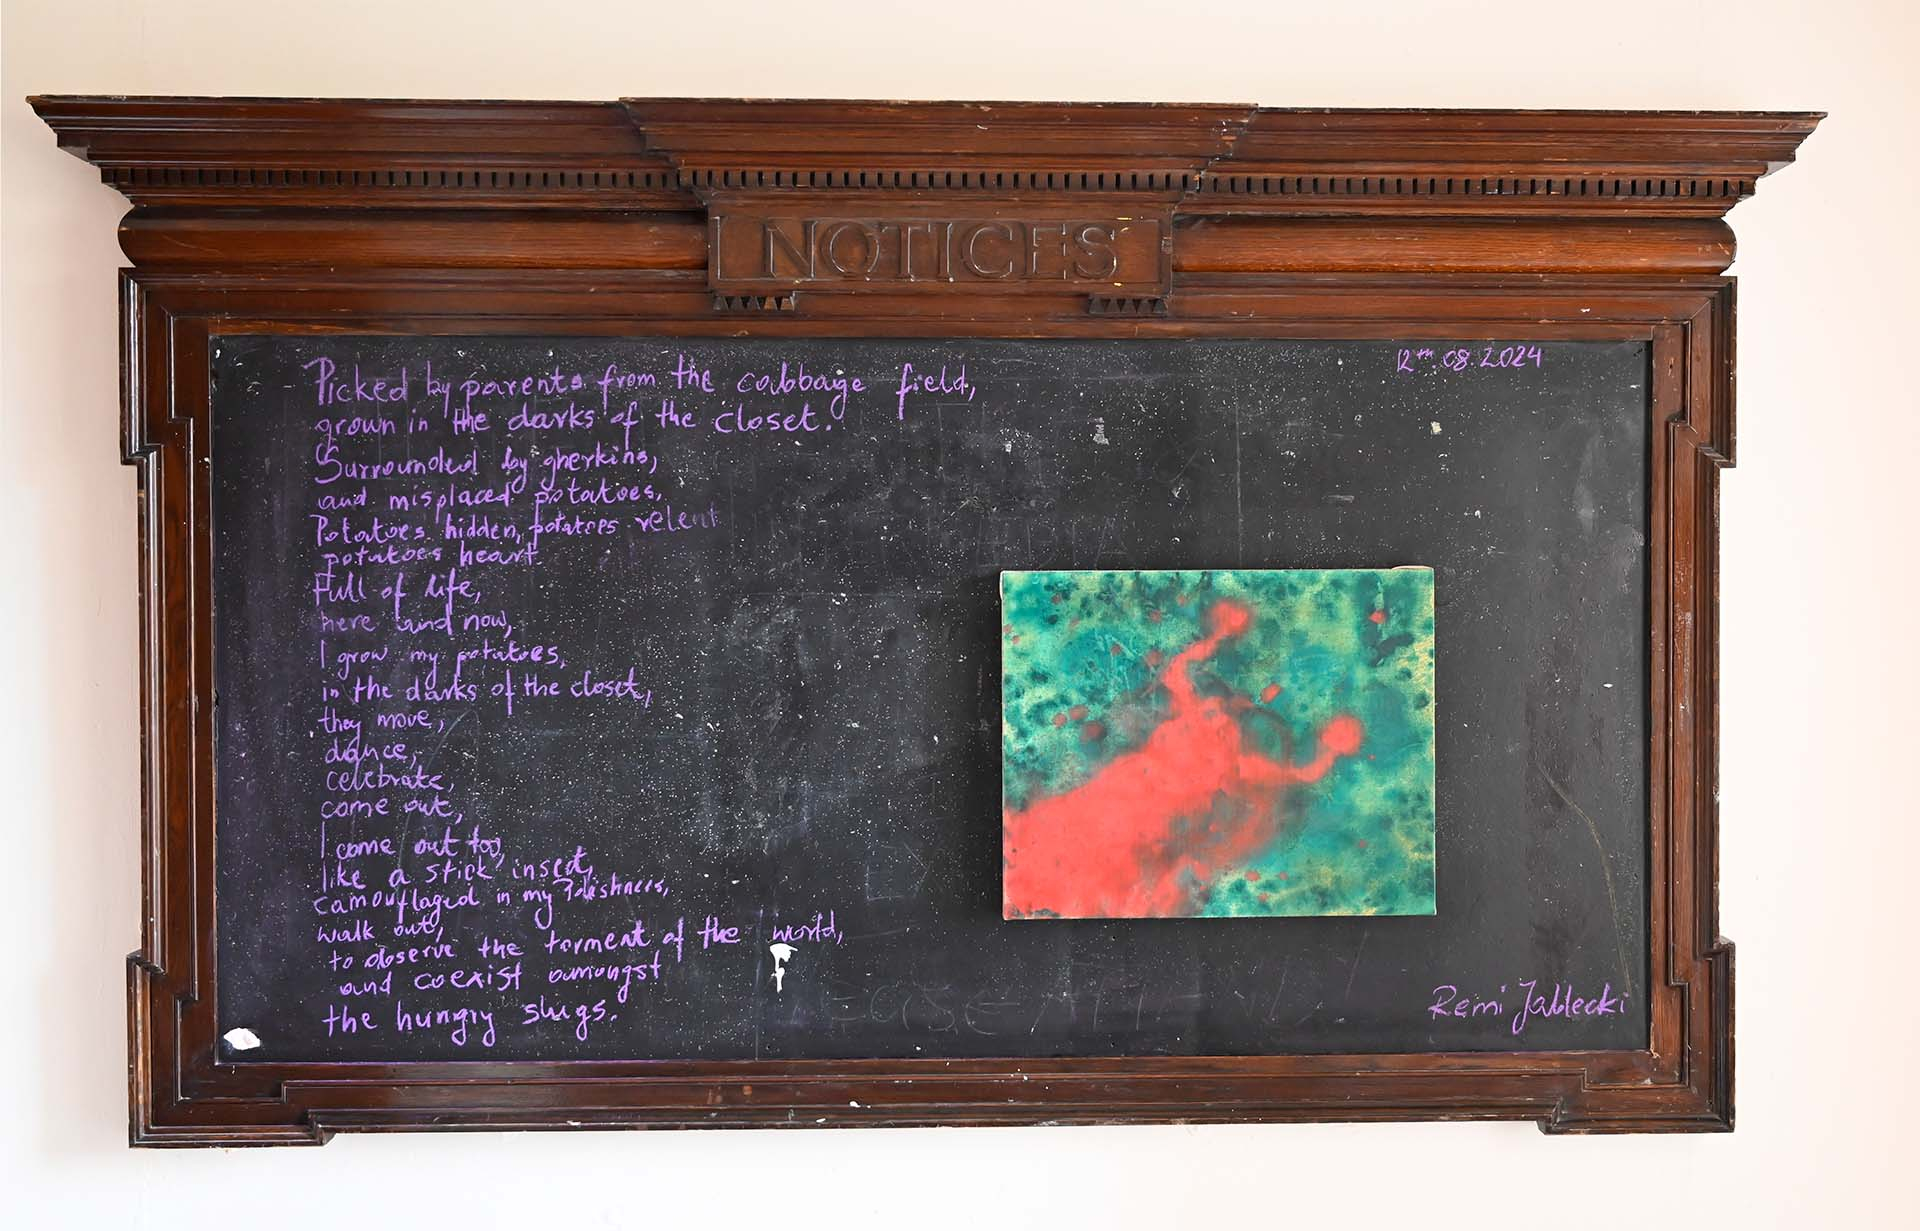 NOTICES
12th.08.2024
Picked by parents from the cabbage field,
grown in the darks of the closet.
Surrounded by gherkins,
and misplaced potatoes,
Potatoes hidden, potatoes relent
potatoes heart
Full of life,
here and now,
I grow my potatoes,
in the darks of the closet,
they move,
dance,
celebrate,
come out,
I come out too,
like a stick insect,
camouflaged in my Polishness,
walk out,
to observe the torment of the world,
and coexist amongst
the hungry slugs.
Remi Jablecki